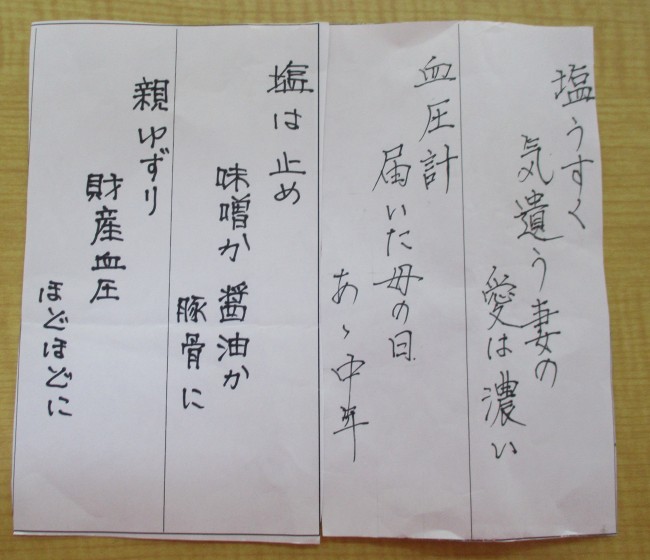 塩うすく
気遣う妻の
愛は濃い
血圧計
届いた母の日
あゝ中年
塩は止め
味噌か醤油か
豚骨に
親ゆずり
財産血圧
ほどほどに